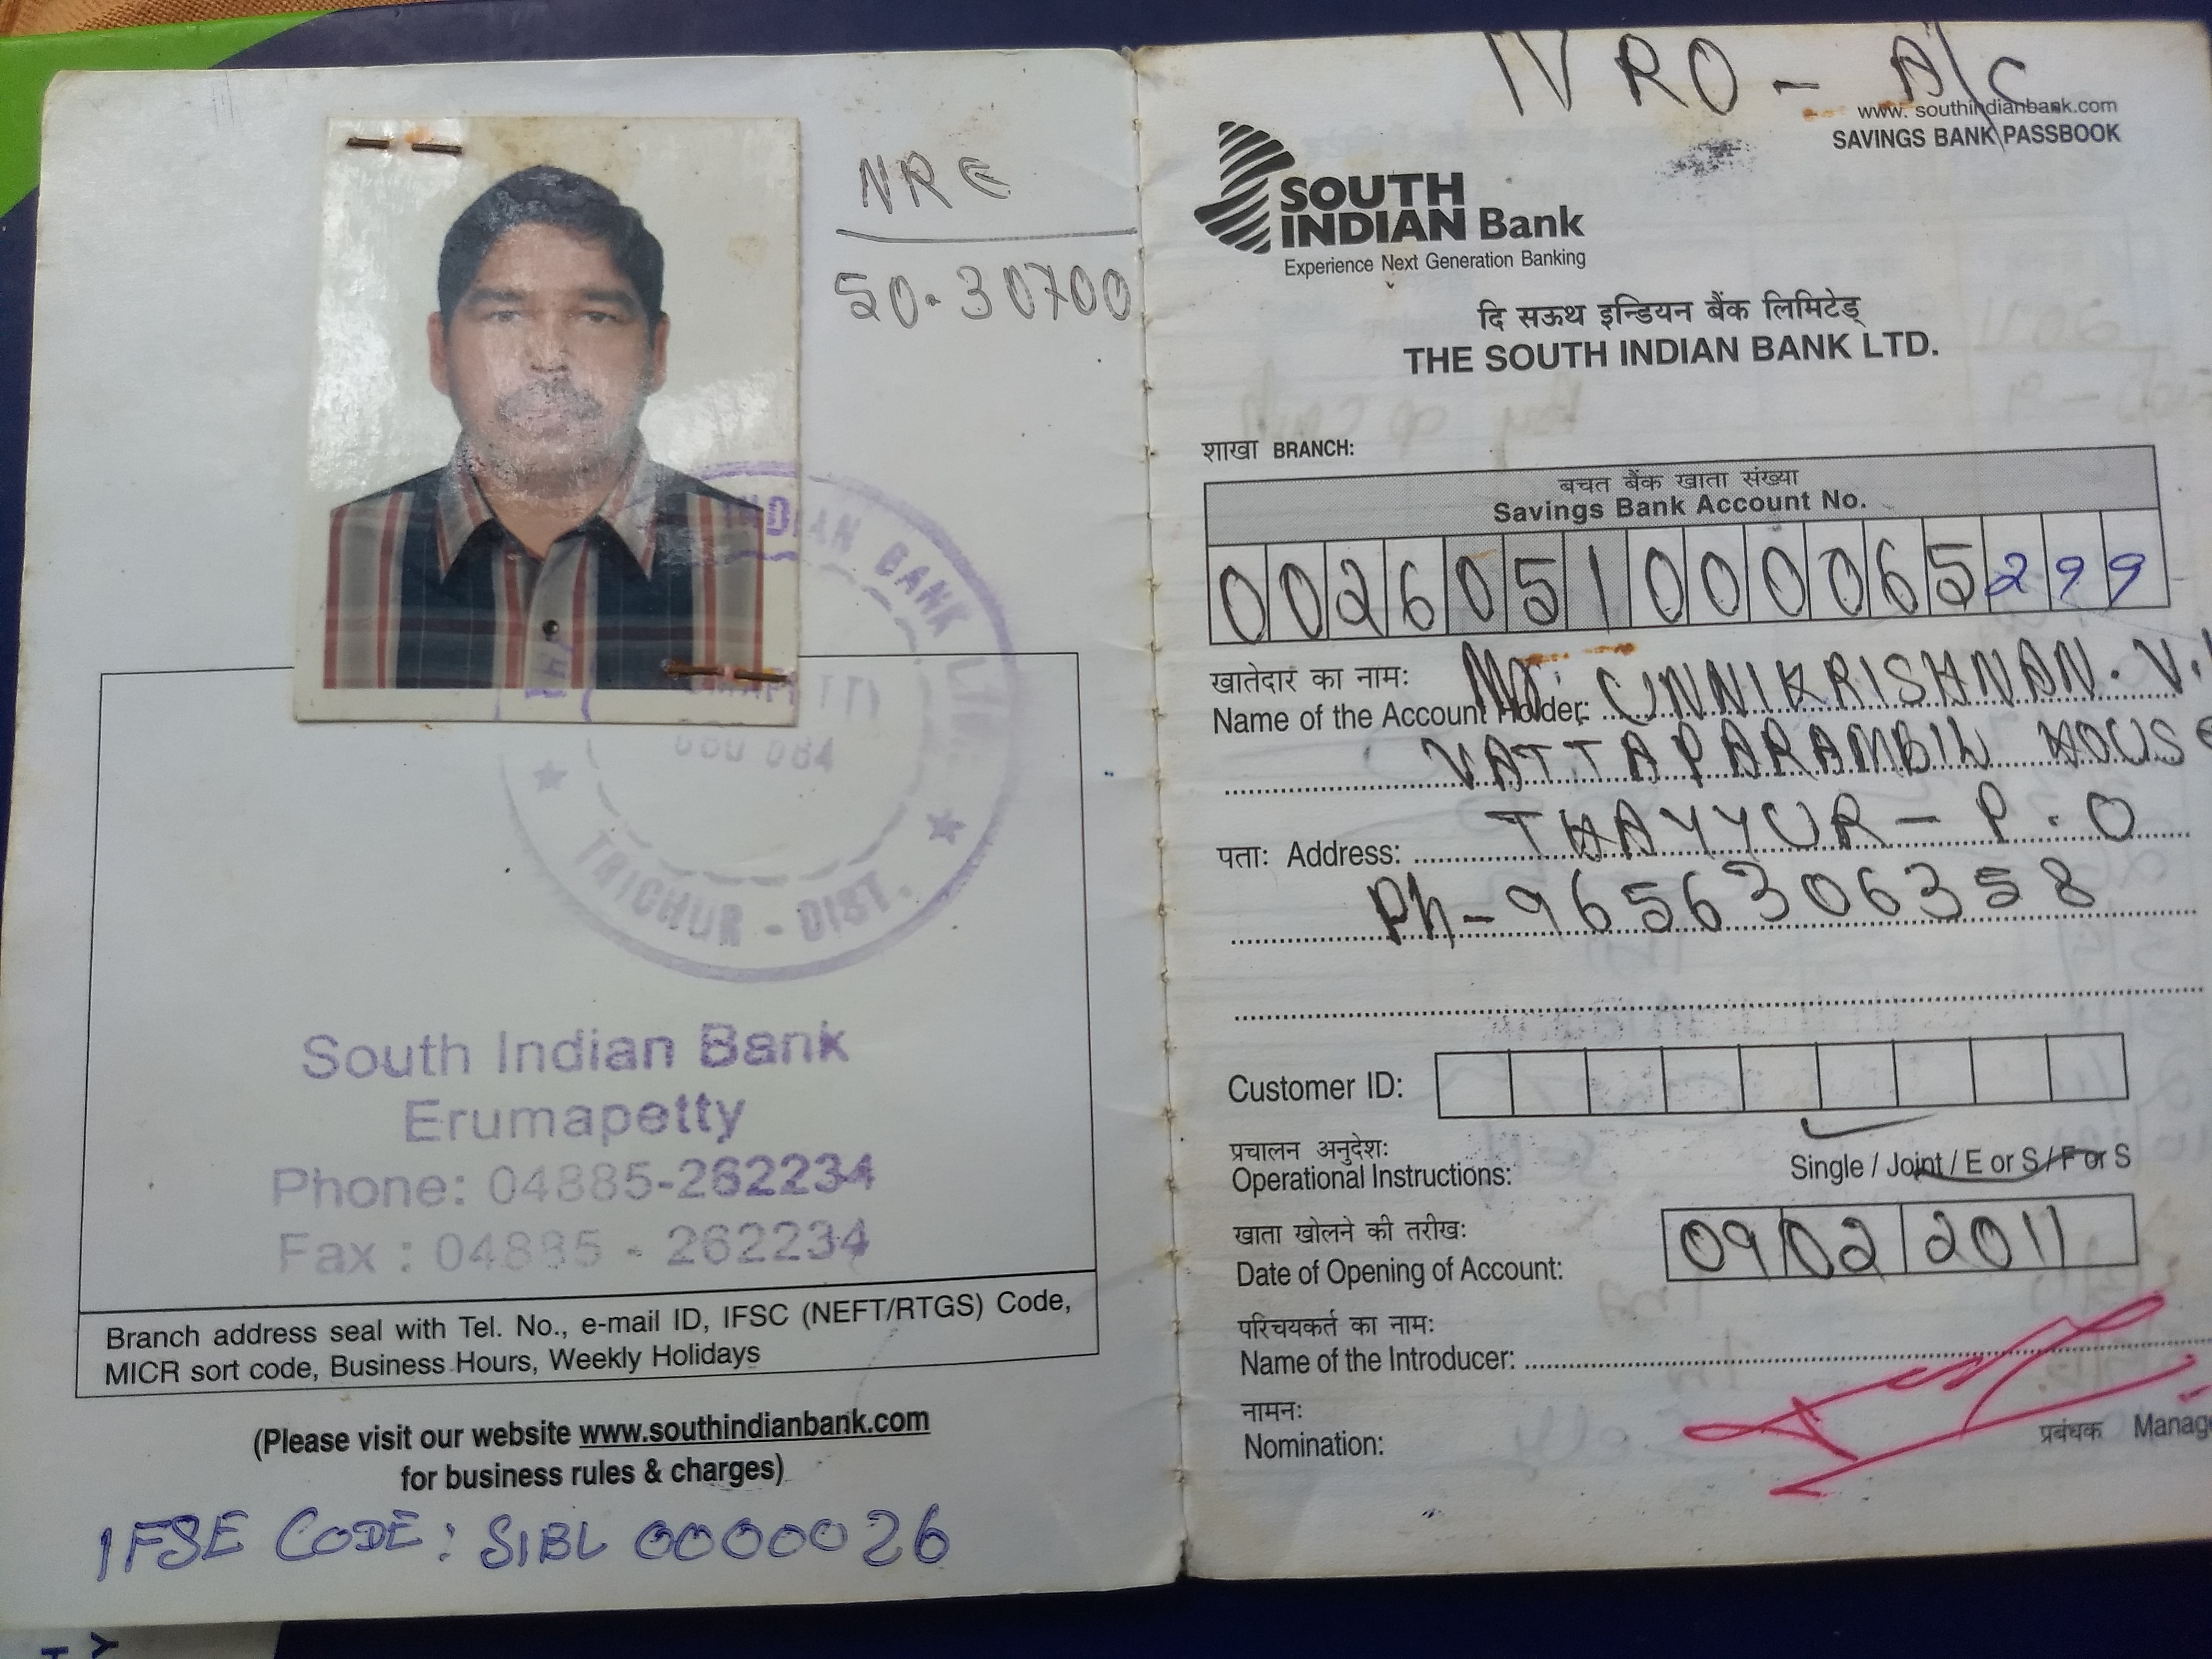 NRE
50-30700
INDIAN BANK LTD.
THE
680 084
TRICHUR - DIST.
South Indian Bank
Erumapetty
Phone: 04885-262234
Fax : 04885 - 262234
Branch address seal with Tel. No., e-mail ID, IFSC (NEFT/RTGS) Code,
MICR sort code, Business Hours, Weekly Holidays
(Please visit our website www.southindianbank.com
for business rules & charges)
IFSE CODE: SIBL 0000026
NRO - A/C
www. southindianbank.com
SAVINGS BANK PASSBOOK
SOUTH
INDIAN Bank
Experience Next Generation Banking
दि सऊथ इन्डियन बैंक लिमिटेड्
THE SOUTH INDIAN BANK LTD.
शाखा BRANCH:
बचत बैंक खाता संख्या
Savings Bank Account No.
0026051000065299
खातेदार का नामः
Name of the Account Holder: Mr. UNNIKRISHNAN. V.
VATTAPARAMBIL HOUSE
पताः Address: THAYYUR - P.O
Ph-9656306358
Customer ID:
प्रचालन अनुदेशः
Operational Instructions: Single / Joint / E or S / F or S
खाता खोलने की तरीखः
Date of Opening of Account: 09 02 2011
परिचयकर्त का नामः
Name of the Introducer:
नामनः
Nomination:
प्रबंधक Manag